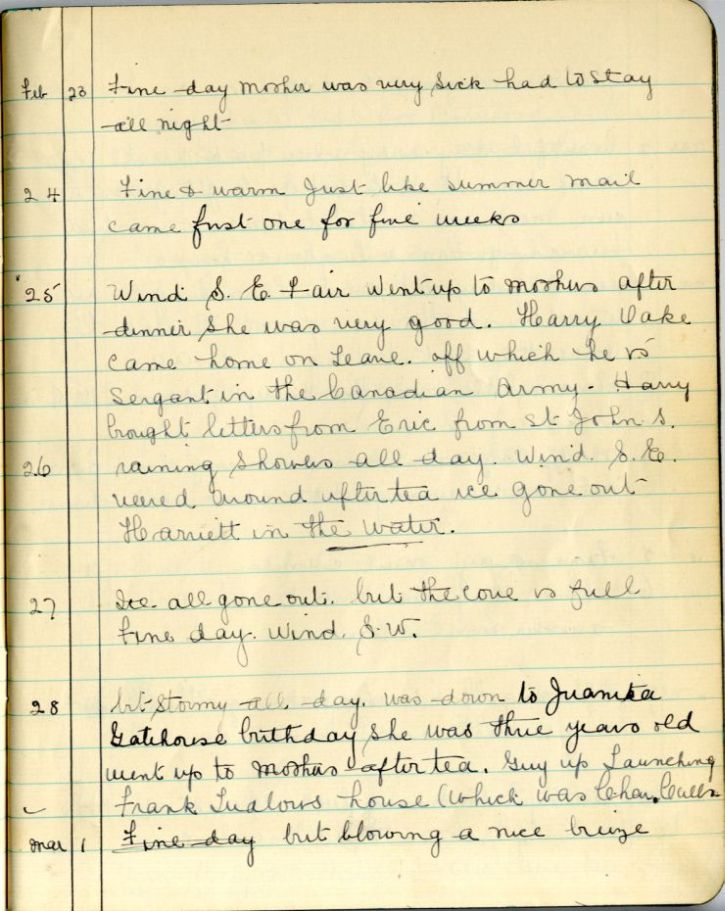 Feb 23 Fine day Mother was very sick had to stay
all night
24 Fine & warm Just like summer mail
came first one for five weeks
25 Wind S. E. Fair Went up to mothers after
dinner she was very good. Harry Oake
came home on Leave. off which he is
Sergant in the Canadian Army - Harry
brought letters from Eric from St John's.
26 raining Showers all day. Wind. S. E.
veered around after tea ice gone out
Harriett in the water.
27 Ice all gone out. but the cove is full
Fine day. Wind. S. W.
28 bit Stormy all day. was down to Juanita
Gatehouse birthday she was three years old
went up to mothers after tea. Guy up Launching
Frank Ludlows house (Which was Chas. Cullen
Mar 1 Fine day but blowing a nice breize